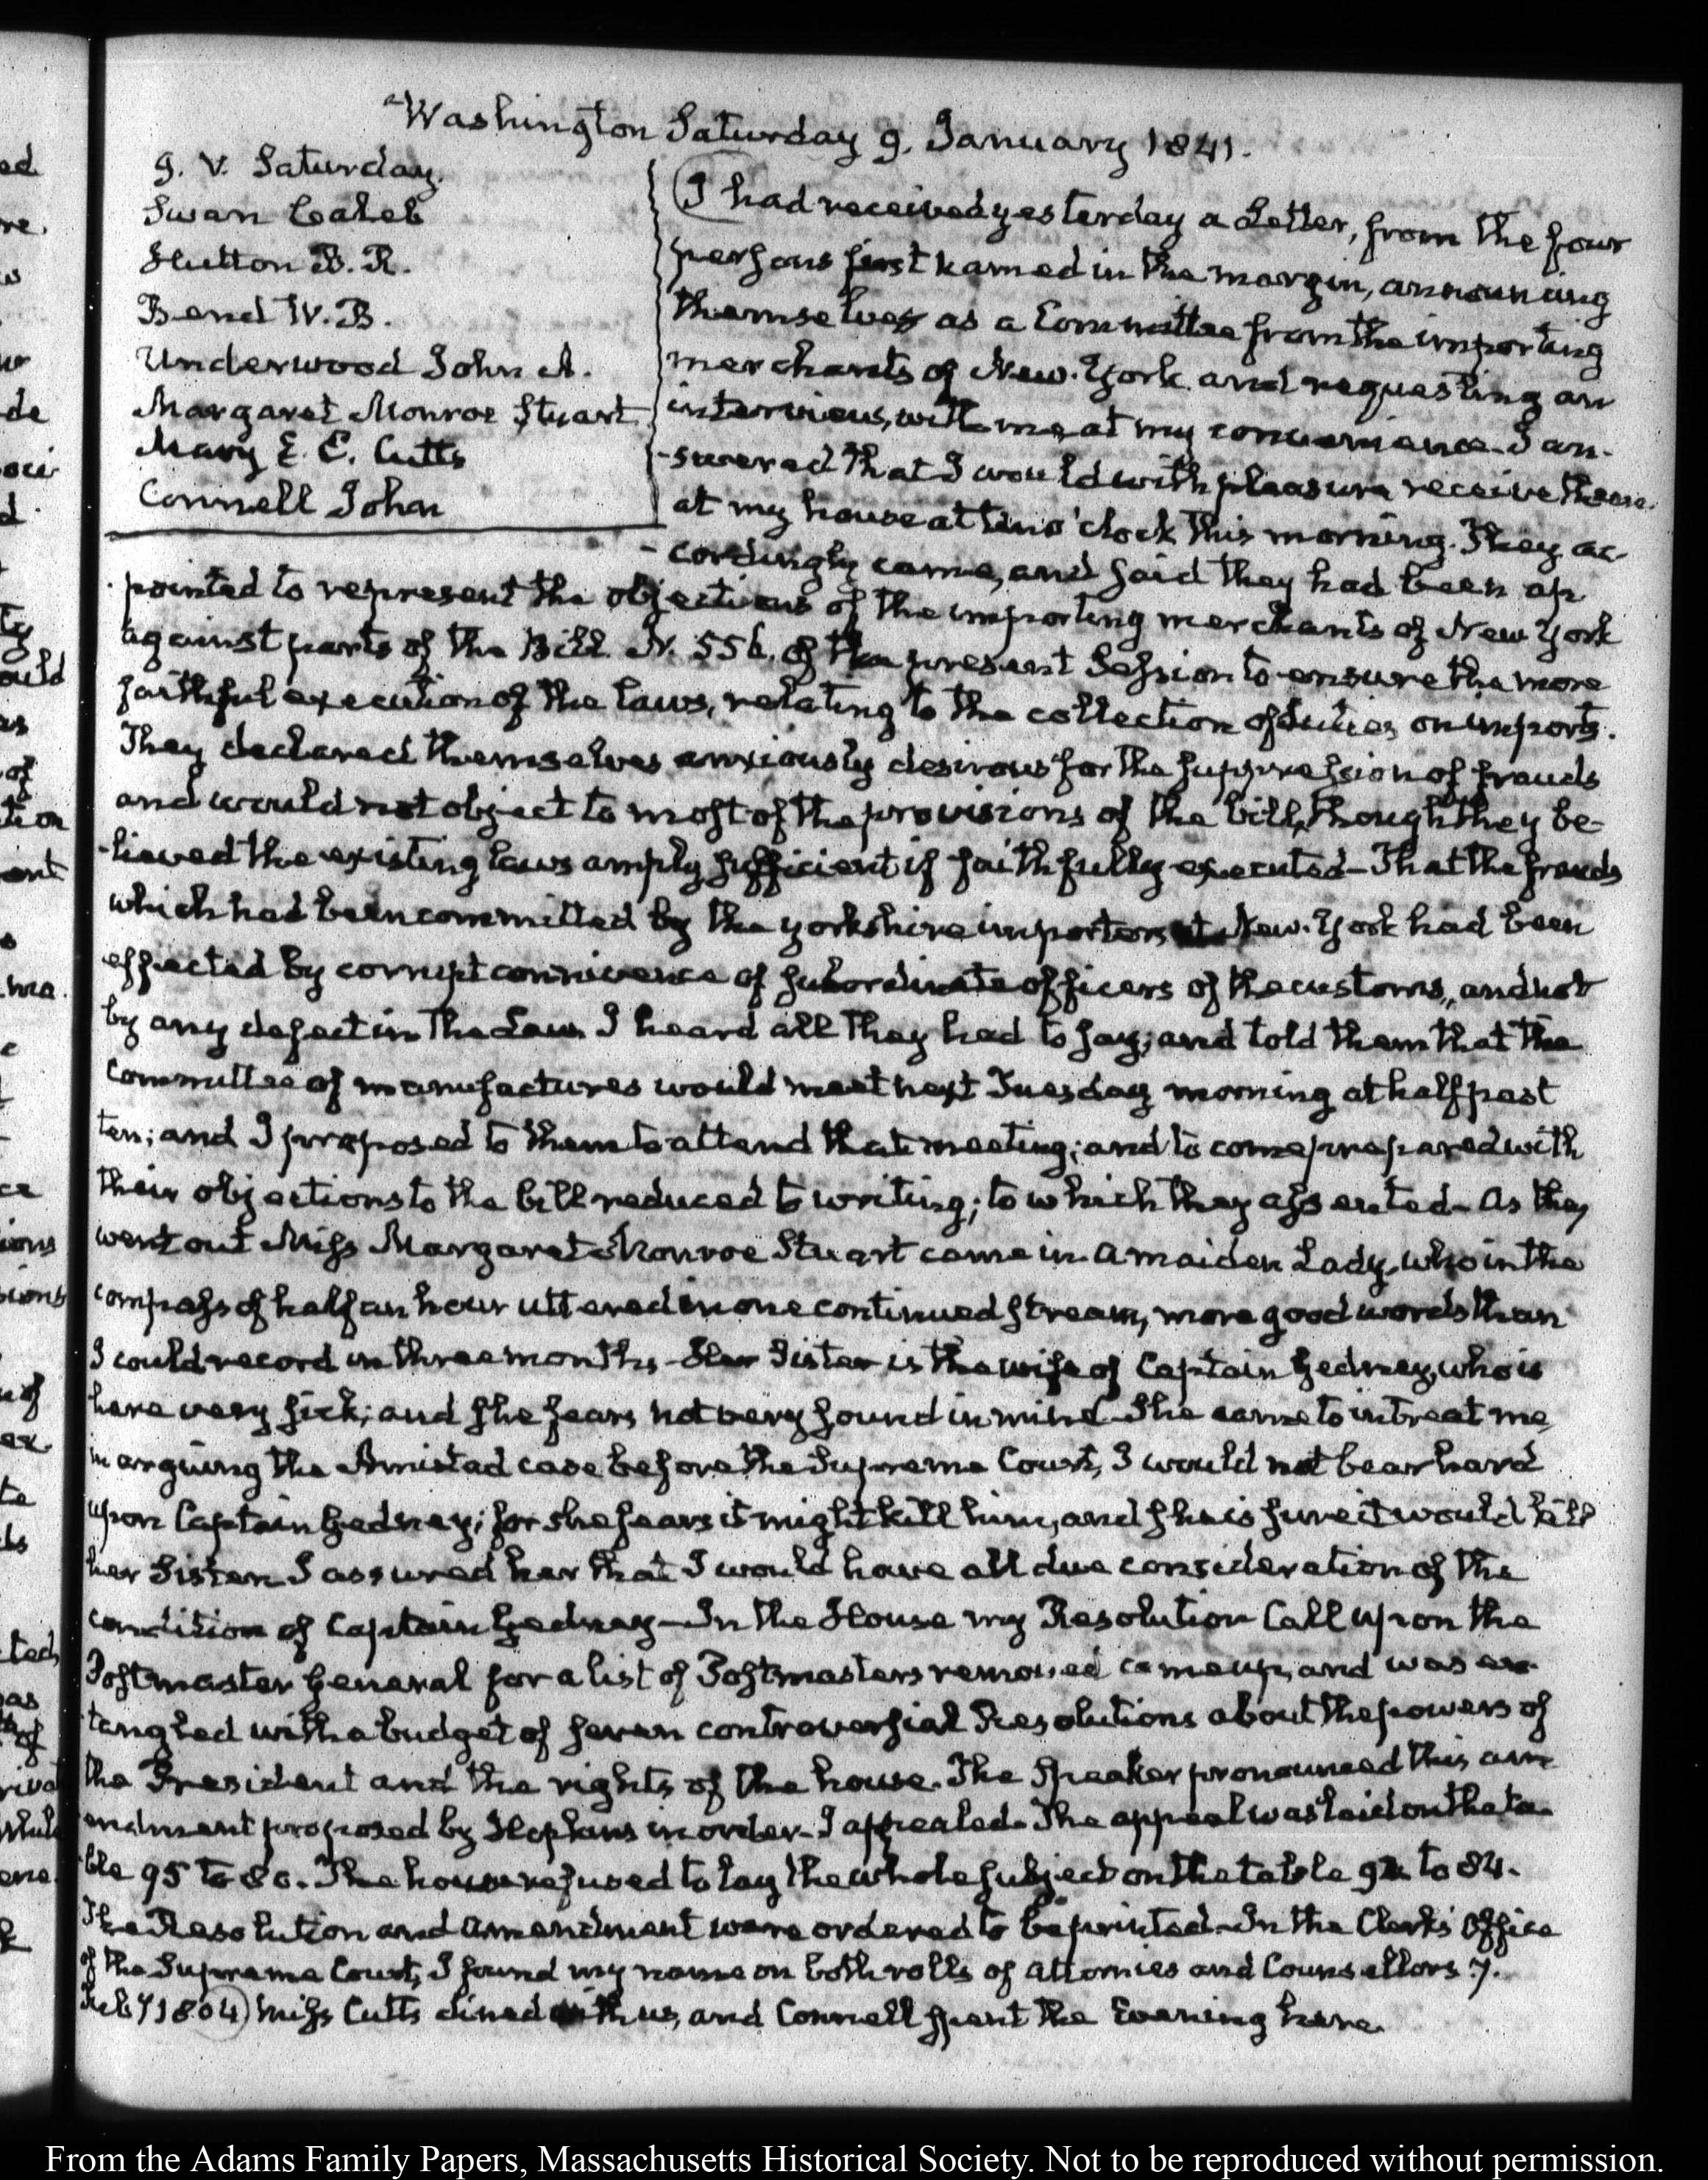 Washington Saturday 9. January 1841.
9. V. Saturday.
Swan Caleb
Hutton B. R.
Bend W. B.
Underwood John A.
Margaret Monroe Stuart
Mary E. E. Cutts
Connell John
I had received yesterday a Letter, from the four
persons first named in the margin, announcing
themselves as a Committee from the importing
merchants of New-York and requesting an
interview, with me, at my convenience. I an-
-swered that I would with pleasure receive them
at my house at ten o'clock this morning. They ac-
-cordingly came, and said they had been ap
pointed to represent the objections of the importing merchants of New York
against parts of the Bill N. 556. of the present Session to ensure the more
faithful execution of the laws, relating to the collection of duties on imports.
They declared themselves anxiously desirous for the suppression of frauds
and would not object to most of the provisions of the bill, though they be-
-lieved the existing laws amply sufficient if faithfully executed- That the frauds
which had been committed by the yorkshire importers at New-York had been
effected by corrupt connivence of subordinate officers of the customs, and not
by any defect in the Law. I heard all they had to say; and told them that the
Committee of manufactures would meet next Tuesday morning at half past
ten; and I proposed to them to attend that meeting; and to come prepared with
their objections to the bill reduced to writing; to which they assented- As they
went out Miss Margaret Monroe Stuart came in a maiden Lady, who in the
compass of half an hour uttered in one continued stream, more good words than
I could record in three months- Her Sister is the wife of Captain Gedney, who is
here very sick; and she fears not very sound in mind- She came to intreat me,
in arguing the Amistad case before the Supreme Court, I would not bear hard
upon Captain Gedney; for she fears it might kill him, and she is sure it would kill
her Sister. I assured her that I would have all due consideration of the
condition of Captain Gedney- In the House my Resolution Call upon the
Postmaster General for a list of Postmasters removed came up, and was en-
tangled with a budget of seven controversial Resolutions about the powers of
the President and the rights of the house. The Speaker pronounced this am-
endment proposed by Hopkins in order- I appealed- The appeal was laid on the ta-
-ble 95 to 80. The house refused to lay the whole subject on the table 92 to 84.
The Resolution and amendment were ordered to be printed- In the Clerk's Office
of the Supreme Court, I found my name on both rolls of attornies and Counsellors 7.
Feby 1804) Miss Cutts dined with us, and Connell spent the Evening here.
From the Adams Family Papers, Massachusetts Historical Society. Not to be reproduced without permission.